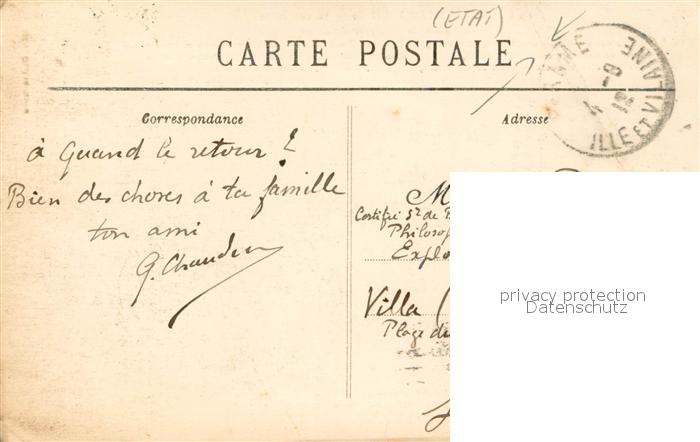 (ETAT)
CARTE POSTALE
ILLE ET VILAINE
Correspondance
Adresse
à quand le retour ?
Bien des choses à ta famille
ton ami
M
Certifié
de
Philosop
Explo
Villa (
Plage du
privacy protection
Datenschutz